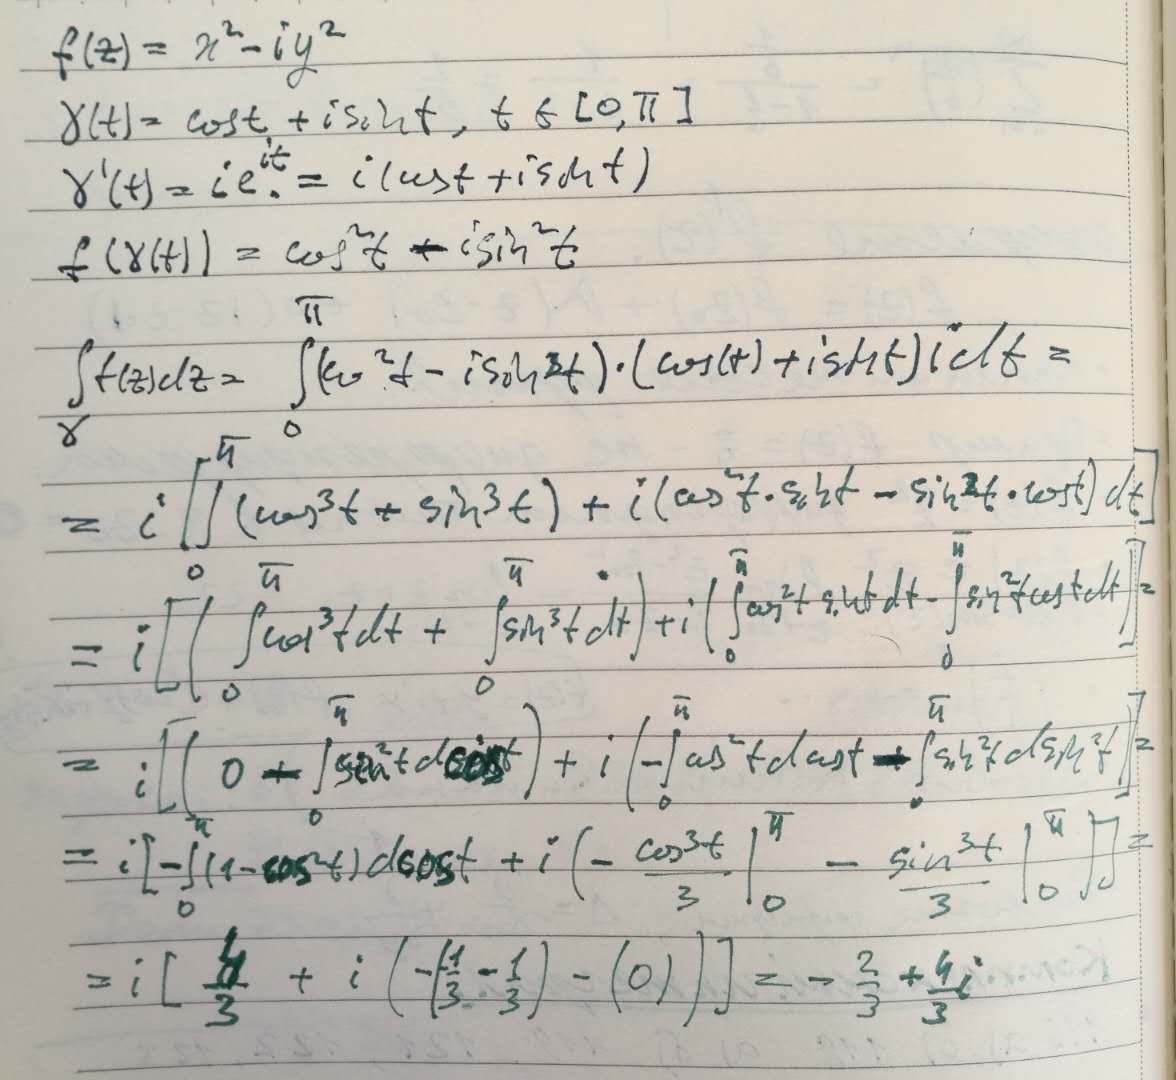 f(z) = x² - iy²
γ(t) = cost + isint, t ∈ [0, π]
γ'(t) = ie^{it} = i(cost + isint)
f(γ(t)) = cos²t - isin²t
∫_γ f(z)dz = ∫_0^π (cos²t - isin²t)·(cos(t) + isint)idt =
= i[∫_0^π (cos³t + sin³t) + i(cos²t·sint - sin²t·cost)dt]
= i[(∫_0^π cos³tdt + ∫_0^π sin³tdt) + i(∫_0^π cos²t sintdt - ∫_0^π sin²tcostdt)] =
= i[(0 - ∫_0^π sin²tdcost) + i(-∫_0^π cos²tdcost - ∫_0^π sin²tdsin²t)] =
= i[-∫_0^π (1-cos²t)dcost + i(-cos³t/3 |_0^π - sin³t/3 |_0^π)] =
= i[4/3 + i(-(-1/3 - 1/3) - (0))] = -2/3 + 4/3 i